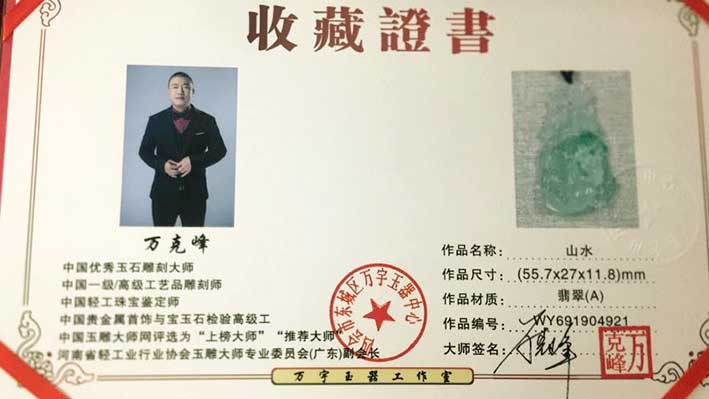 收藏證書
万克峰
中国优秀玉石雕刻大师
中国一级/高级工艺品雕刻师
中国轻工珠宝鉴定师
中国贵金属首饰与宝玉石检验高级工
中国玉雕大师网评选为“上榜大师”“推荐大师”
河南省轻工业行业协会玉雕大师专业委员会(广东)副会长
作品名称: 山水
作品尺寸: (55.7x27x11.8)mm
作品材质: 翡翠(A)
作品编号: WY691904921
大师签名:
四会市东城区万宇玉器中心
万克峰
万宇玉器工作室